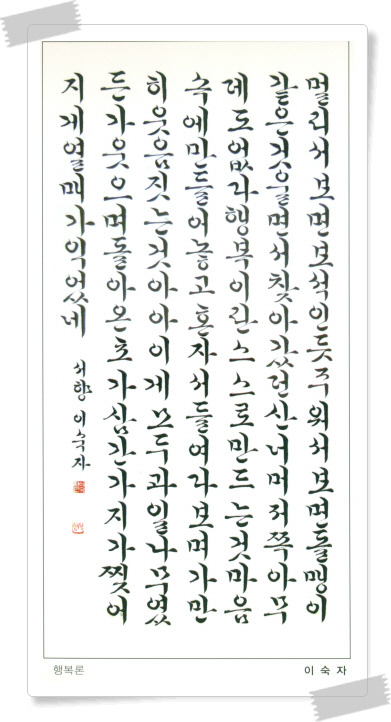 멀리서보면보석인듯주워서보면돌맹이
같은것울면서찾아갔던산너머저쪽아무
데도없다행복이란스스로만드는것마음
속에만들어놓고혼자서들여다보며가만
히웃음짓는것아아이게모두과일나무였
든가웃으며돌아온초가삼간가지가찢어
지게열매가익었네
서향 이숙자
행복론
이 숙 자